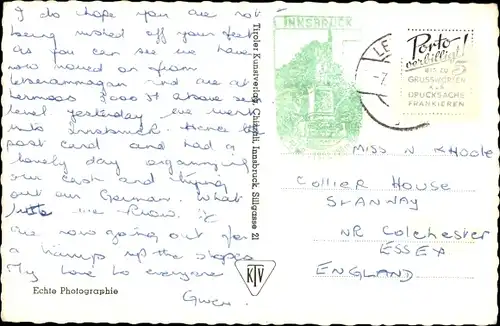 I do hope you are not
being washed off your feet
as you can see we have
now moved on from
and are at
Lermoos 3000 ft above sea
level. yesterday we went
into Innsbruck. Hence the
post card and had a
lovely day organizing
our cash and trying
out our German. What
we know.
We are now going out for
a tramp up the slopes
My love to everyone
Gwen.
Echte Photographie
Tiroler Kunstverlag Chizzali, Innsbruck, Sillgasse 21
KTV
INNSBRUCK
LE
Porto
verbilligt!
BIS ZU 5
GRUSSWORTEN
ALS
DRUCKSACHE
FRANKIEREN
MISS N KHOOLE
COLLIER HOUSE
STANWAY
NR COLCHESTER
ESSEX
ENGLAND